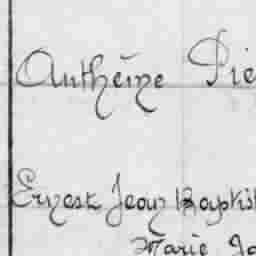 Anthéine Pie
Ernest Jean Baptist
Marie Ja